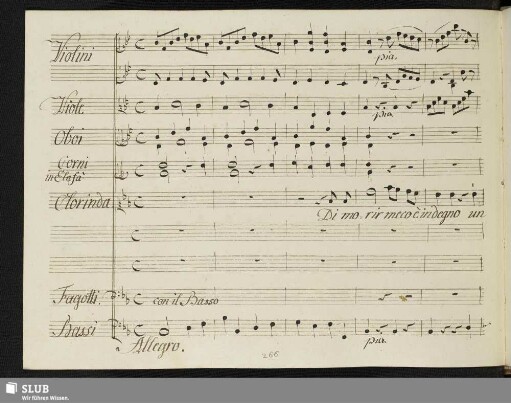 Violini
pia.
Viole.
pia
Oboi
Corni
in Elafà
Clorinda
Di mo, rir meco è indegno un
Fagotti.
con il Basso
Bassi
pia
Allegro.
266
SLUB
Wir führen Wissen.